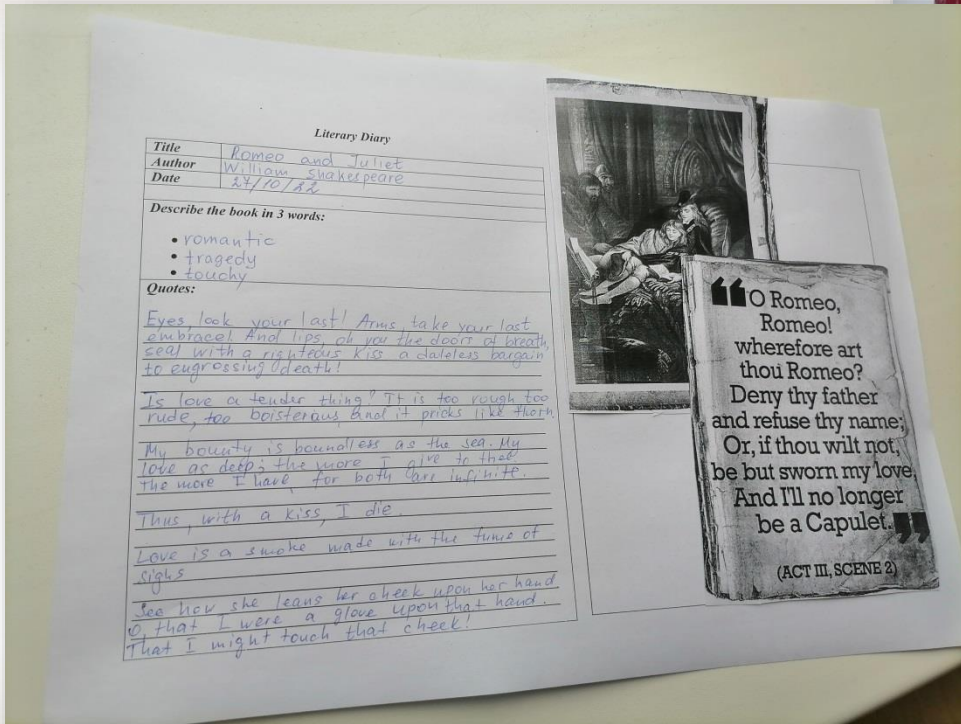 Literary Diary
Title Romeo and Juliet
Author William Shakespeare
Date 27/10/22
Describe the book in 3 words:
• romantic
• tragedy
• touchy
Quotes:
Eyes, look your last! Arms, take your last
embrace! And lips, oh you the doors of breath,
seal with a righteous kiss a dateless bargain
to engrossing death!
Is love a tender thing? It is too rough too
rude, too boisterous, and it pricks like thorn.
My bounty is boundless as the sea. My
love as deep; the more I give to thee
The more I have, for both are infinite.
Thus, with a kiss, I die.
Love is a smoke made with the fume of
sighs
See how she leans her cheek upon her hand
O, that I were a glove upon that hand.
That I might touch that cheek!
“O Romeo,
Romeo!
wherefore art
thou Romeo?
Deny thy father
and refuse thy name;
Or, if thou wilt not,
be but sworn my love,
And I'll no longer
be a Capulet.”
(ACT III, SCENE 2)